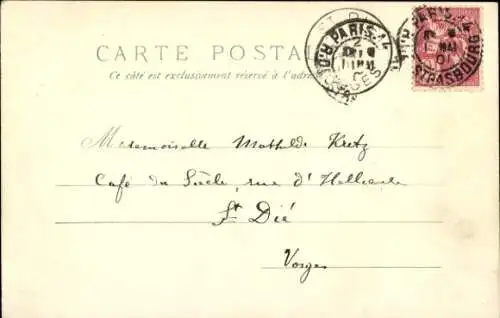 CARTE POSTALE
Ce côté est exclusivement réservé à l'adresse
PARIS 44
R. DE STRASBOURG
MAI 01
Mademoiselle Mathilde Kretz
Café du Siècle, rue d'Hellieule
St Dié
Vosges